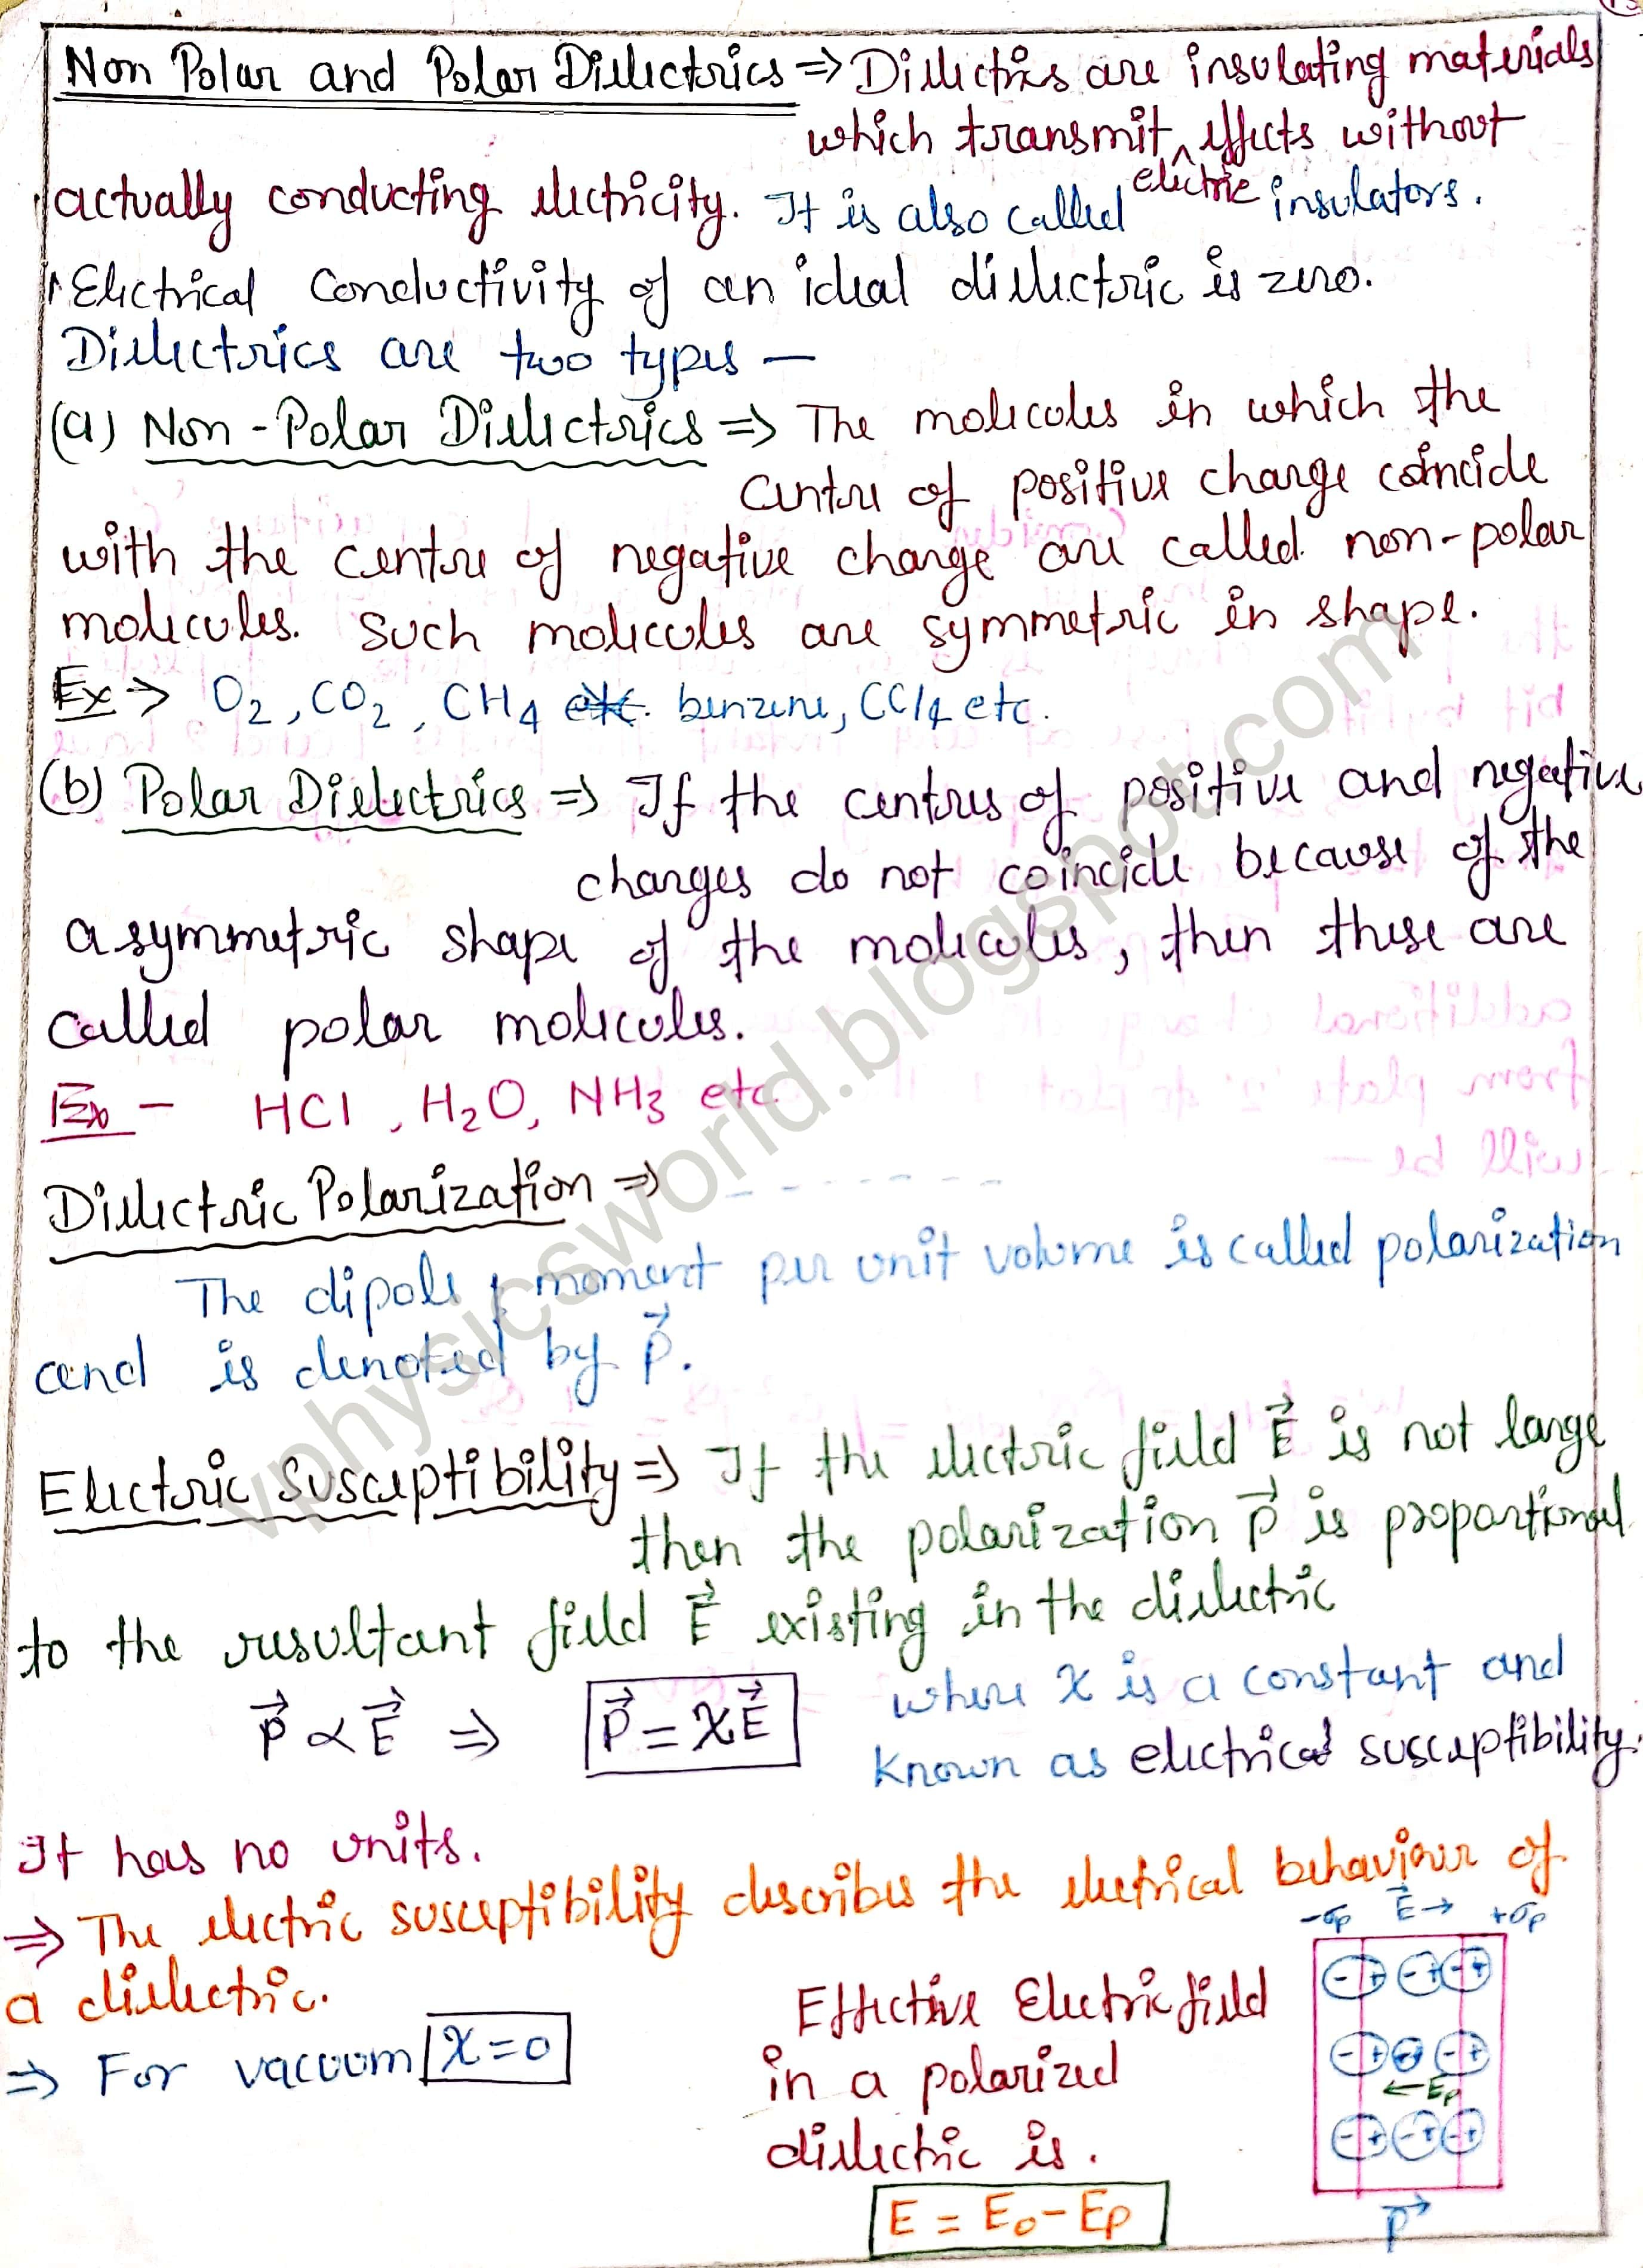 Non Polar and Polar Dielectrics ⇒ Dielectrics are insulating materials
which transmit electric effects without
actually conducting electricity. It is also called insulators.
Electrical Conductivity of an ideal dielectric is zero.
Dielectrics are two types —
(a) Non-Polar Dielectrics ⇒ The molecules in which the
centre of positive charge coincide
with the centre of negative charge are called non-polar
molecules. Such molecules are symmetric in shape.
Ex ⇒ O2, CO2, CH4 etc. benzene, CCl4 etc.
(b) Polar Dielectrics ⇒ If the centres of positive and negative
charges do not coincide because of the
asymmetric shape of the molecules, then these are
called polar molecules.
Ex – HCl, H2O, NH3 etc.
Dielectric Polarization ⇒
The dipole moment per unit volume is called polarization
and is denoted by P⃗.
Electric Susceptibility ⇒ If the electric field E⃗ is not large
then the polarization P⃗ is proportional
to the resultant field E⃗ existing in the dielectric
P⃗ ∝ E⃗ ⇒ P⃗ = χE⃗ where χ is a constant and
known as electrical susceptibility.
It has no units.
⇒ The electric susceptibility describes the electrical behaviour of
a dielectric.
⇒ For vacuum χ=0
Effective Electric field
in a polarized
dielectric is.
E = E0 – Ep
-σp E⃗→ +σp
- + - + - +
- + - + - +
←Ep
- + - + - +
P⃗
vphysicsworld.blogspot.com